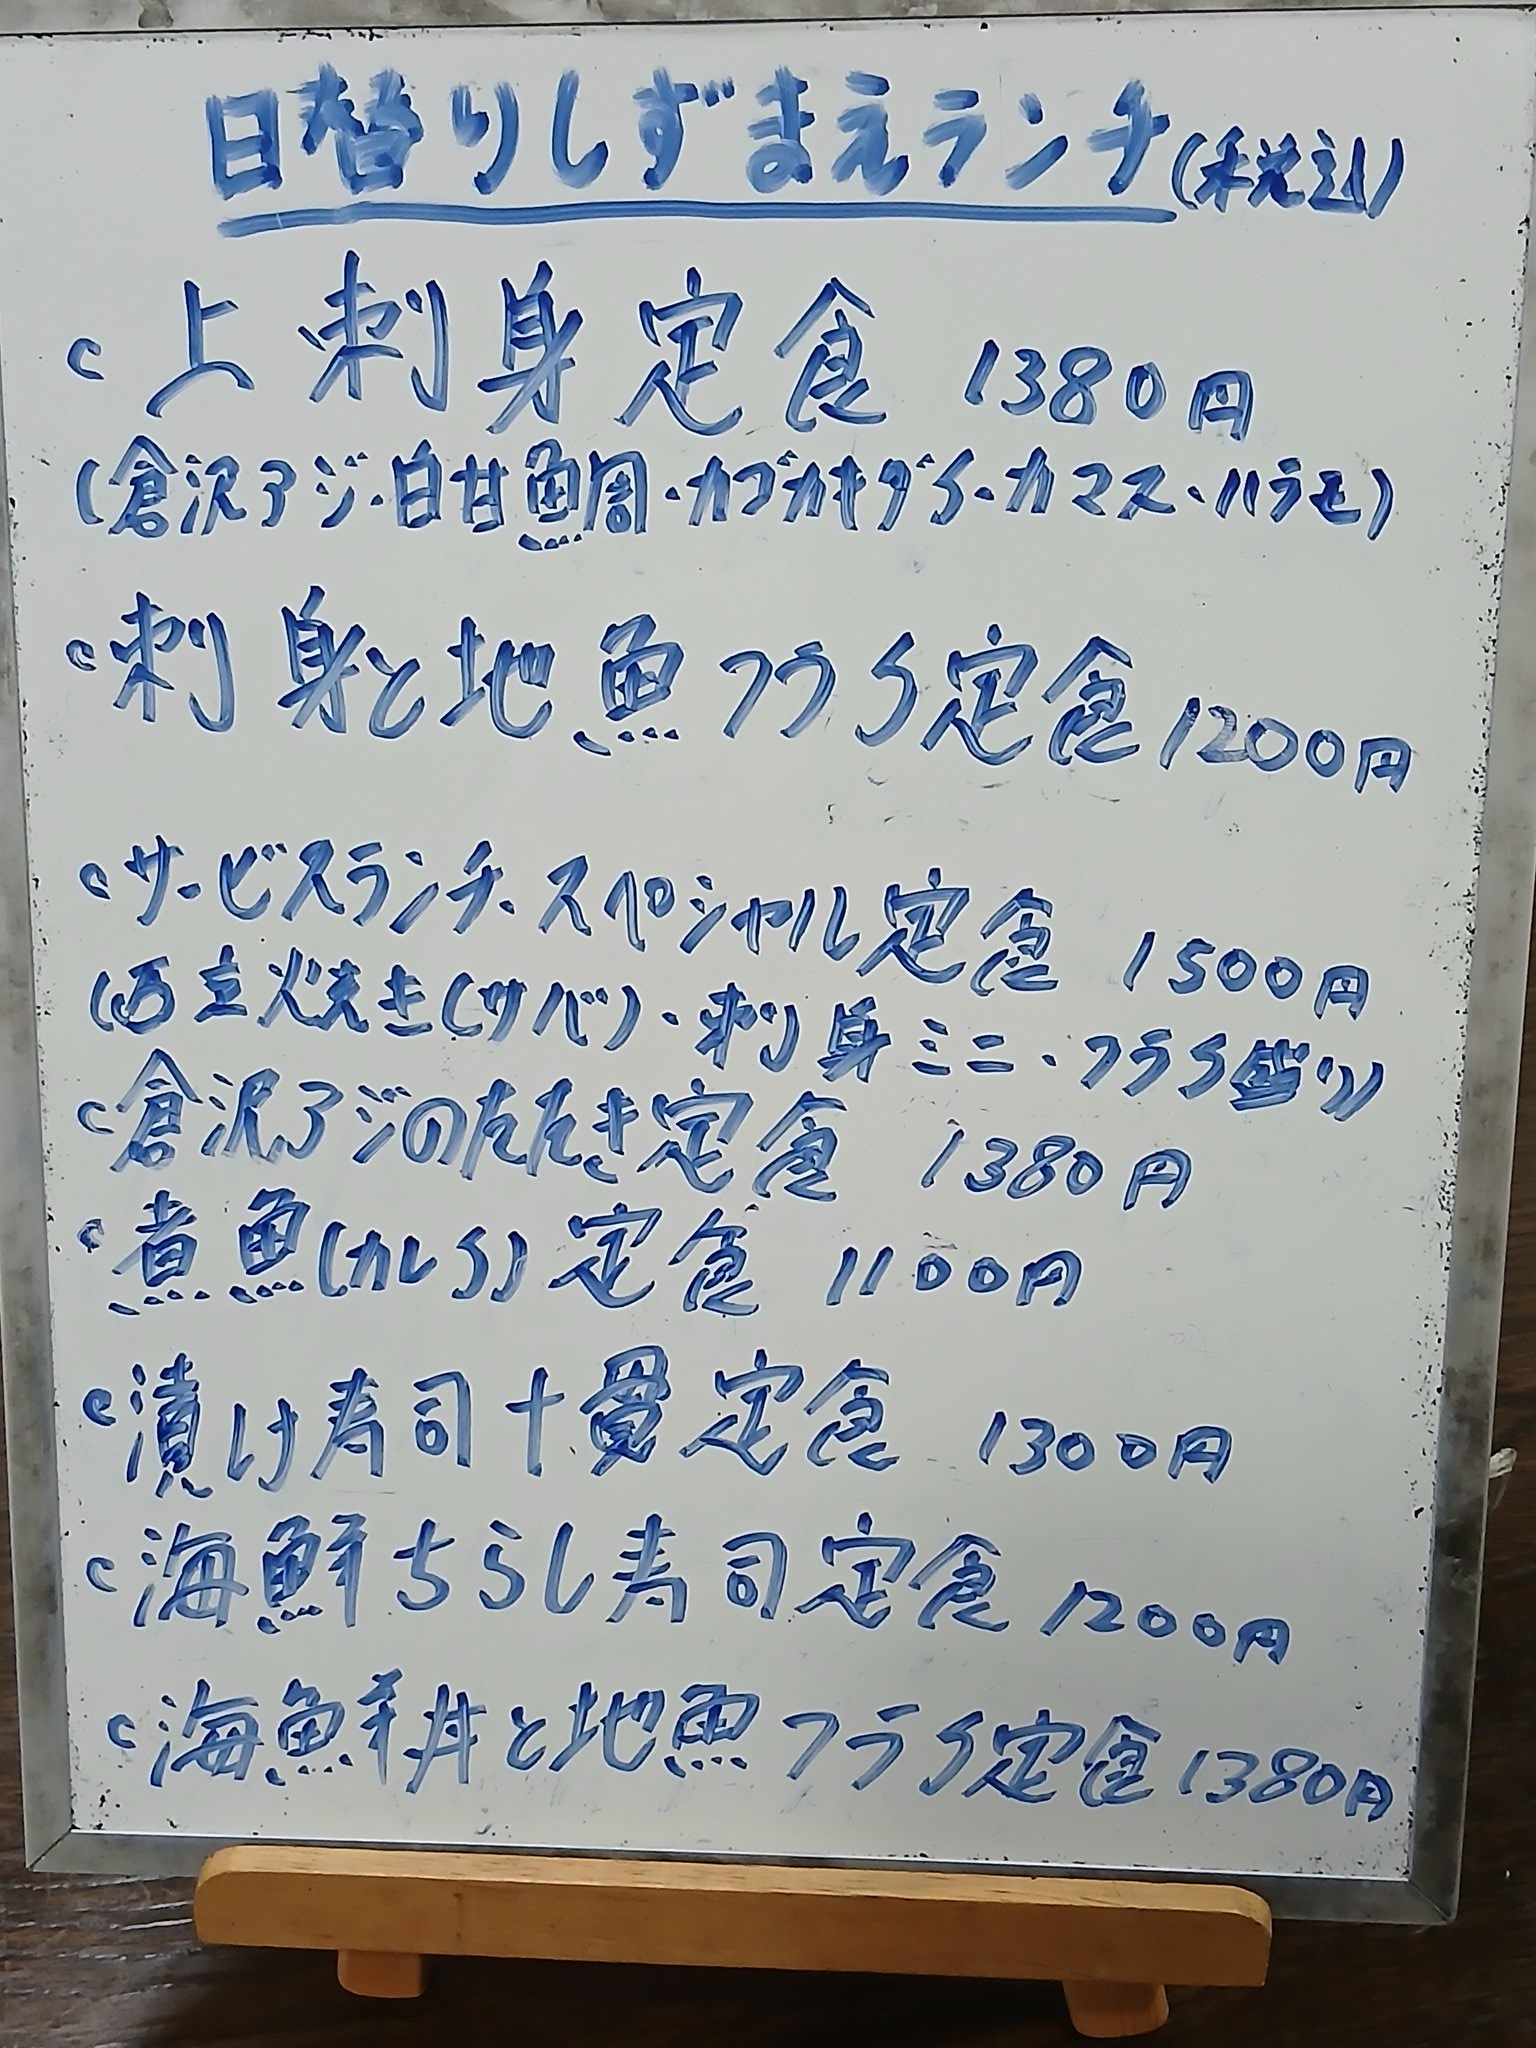 日替りしずまえランチ(税込)
・上刺身定食 1380円
(倉沢アジ・白甘鯛・カゴカキダイ・カマス・ハラモ)
・刺身と地魚フライ定食 1200円
・サービスランチ・スペシャル定食 1500円
(西京焼き(サバ)・刺身ミニ・フライ盛り)
・倉沢アジのたたき定食 1380円
・煮魚(カレイ)定食 1100円
・漬け寿司十貫定食 1300円
・海鮮ちらし寿司定食 1200円
・海鮮丼と地魚フライ定食 1380円